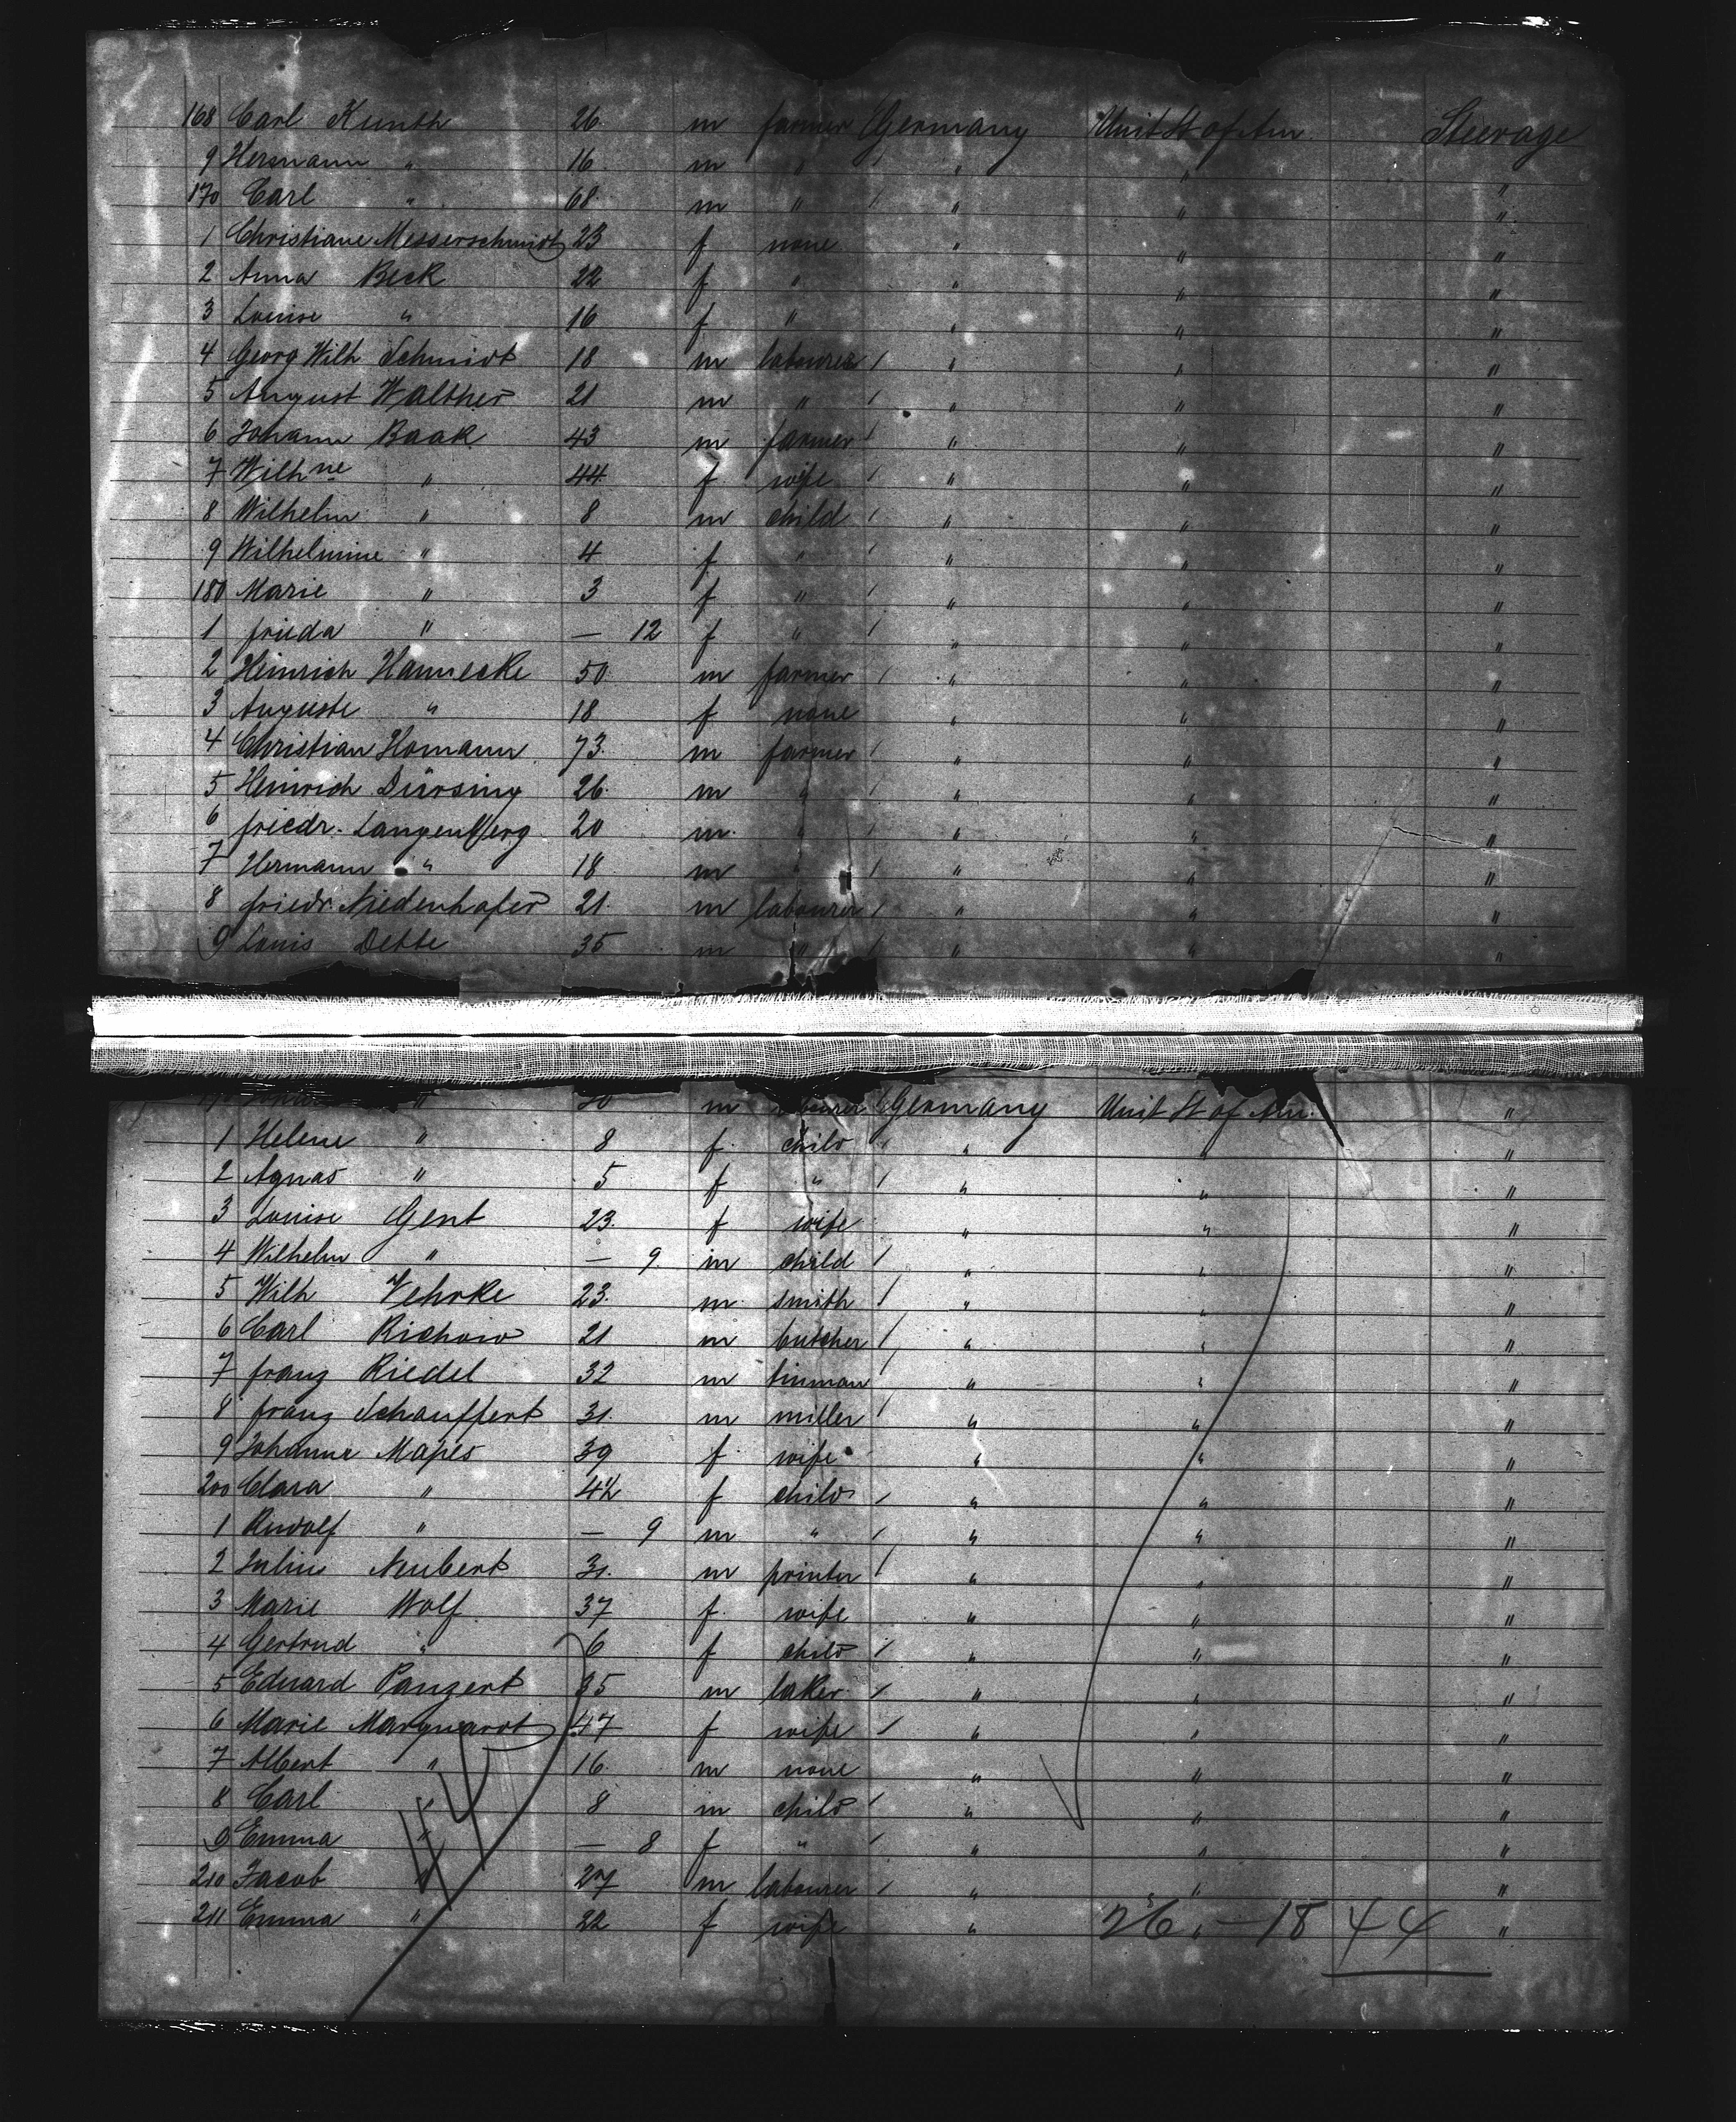 168 Carl Kunth 26 m farmer Germany Unit St of Am. Steerage
9 Hermann " 16 m " / " " "
170 Carl " 68 m " / " " "
1 Christiane Messerschmidt 23 f none " " "
2 Anna Beck 22 f " " " "
3 Louise " 16 f " " " "
4 Georg Wilh Schmidt 18 m labourer / " " "
5 August Walther 21 m " / " " "
6 Johann Baak 43 m farmer / " " "
7 Wilhne " 44 f wife / " " "
8 Wilhelm " 8 m child / " " "
9 Wilhelmine " 4 f " / " " "
180 Marie " 3 f " / " " "
1 frieda " — 12 f " / " " "
2 Heinrich Hannecke 50 m farmer / " " "
3 Auguste " 18 f none " " "
4 Christian Homann 73 m farmer / " " "
5 Heinrich Dürsing 26 m " / " " "
6 friedr. Langenberg 20 m " / " " "
7 Hermann " 18 m " / " " "
8 friedr. Niedenhofer 21 m labourer / " " "
9 Louis Dette 35 m " / " " "
" m labourer Germany Unit St of Am. "
1 Helene " 8 f child / " " "
2 Agnas " 5 f " / " " "
3 Louise Gent 23 f wife " " "
4 Wilhelm " — 9 m child / " " "
5 Wilh Vehrke 23 m smith / " " "
6 Carl Richow 21 m butcher / " " "
7 franz Riedel 32 m tinman / " " "
8 franz Schauffert 31 m miller / " " "
9 Johanne Mapes 39 f wife " " "
200 Clara " 4½ f child / " " "
1 Rudolf " — 9 m " / " " "
2 Julius Neubert 31 m printer / " " "
3 Marie Wolf 37 f wife " " "
4 Gertrud " 6 f child / " " "
5 Eduard Panzert 35 m baker / " " "
6 Marie Marquardt 47 f wife / " " "
7 Albert " 16 m none " " "
8 Carl " 8 m child / " " "
9 Emma " — 8 f " / " " "
210 Jacob " 27 m labourer / " " "
211 Emma " 22 f wife " 26 " — 18 44 "
44